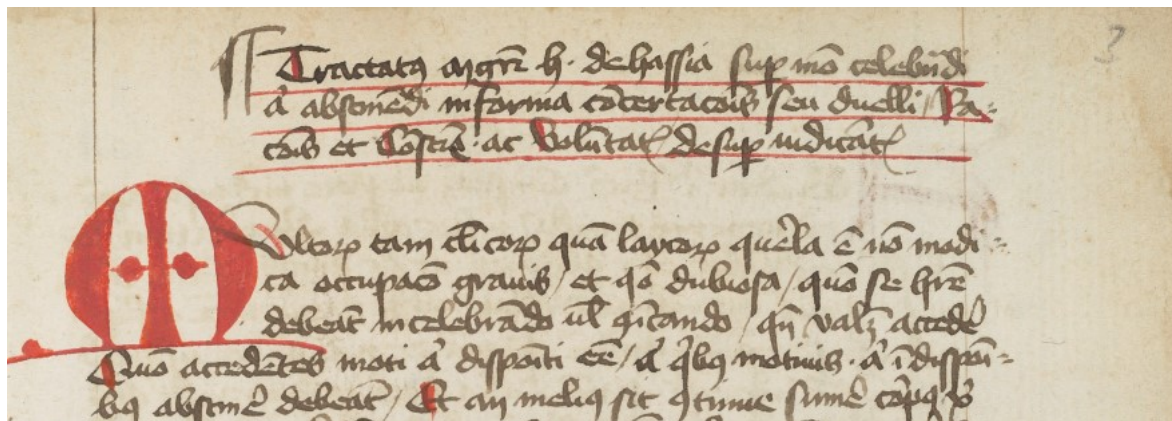 Tractatꝰ mgrī h. de hassia suꝑ mō celebrādi
a͛ abstinēdi in forma cōcertacōis seu duelli / Ra-
cōis et Cōscīe · ac Volūtatꝭ desuꝑ iudicātꝭ
Multoꝝ tam cl̄icoꝝ quā laycoꝝ quer̄la ē nō modi-
ca occupacō grauis / et qō dubiosa / quō se hr̄e
debeāt in celebrādo ul̄ ꝯicando / qn̄ valꝫ acceder̄
Quō accedētes moti a͛ dispoīti eē / a͛ q̄bꝰ motiuis · a͛ īdispoī-
bꝰ abstiner̄ debeāt / Et an meliꝰ sit ꝯtinue sumer̄ corpꝰ
3